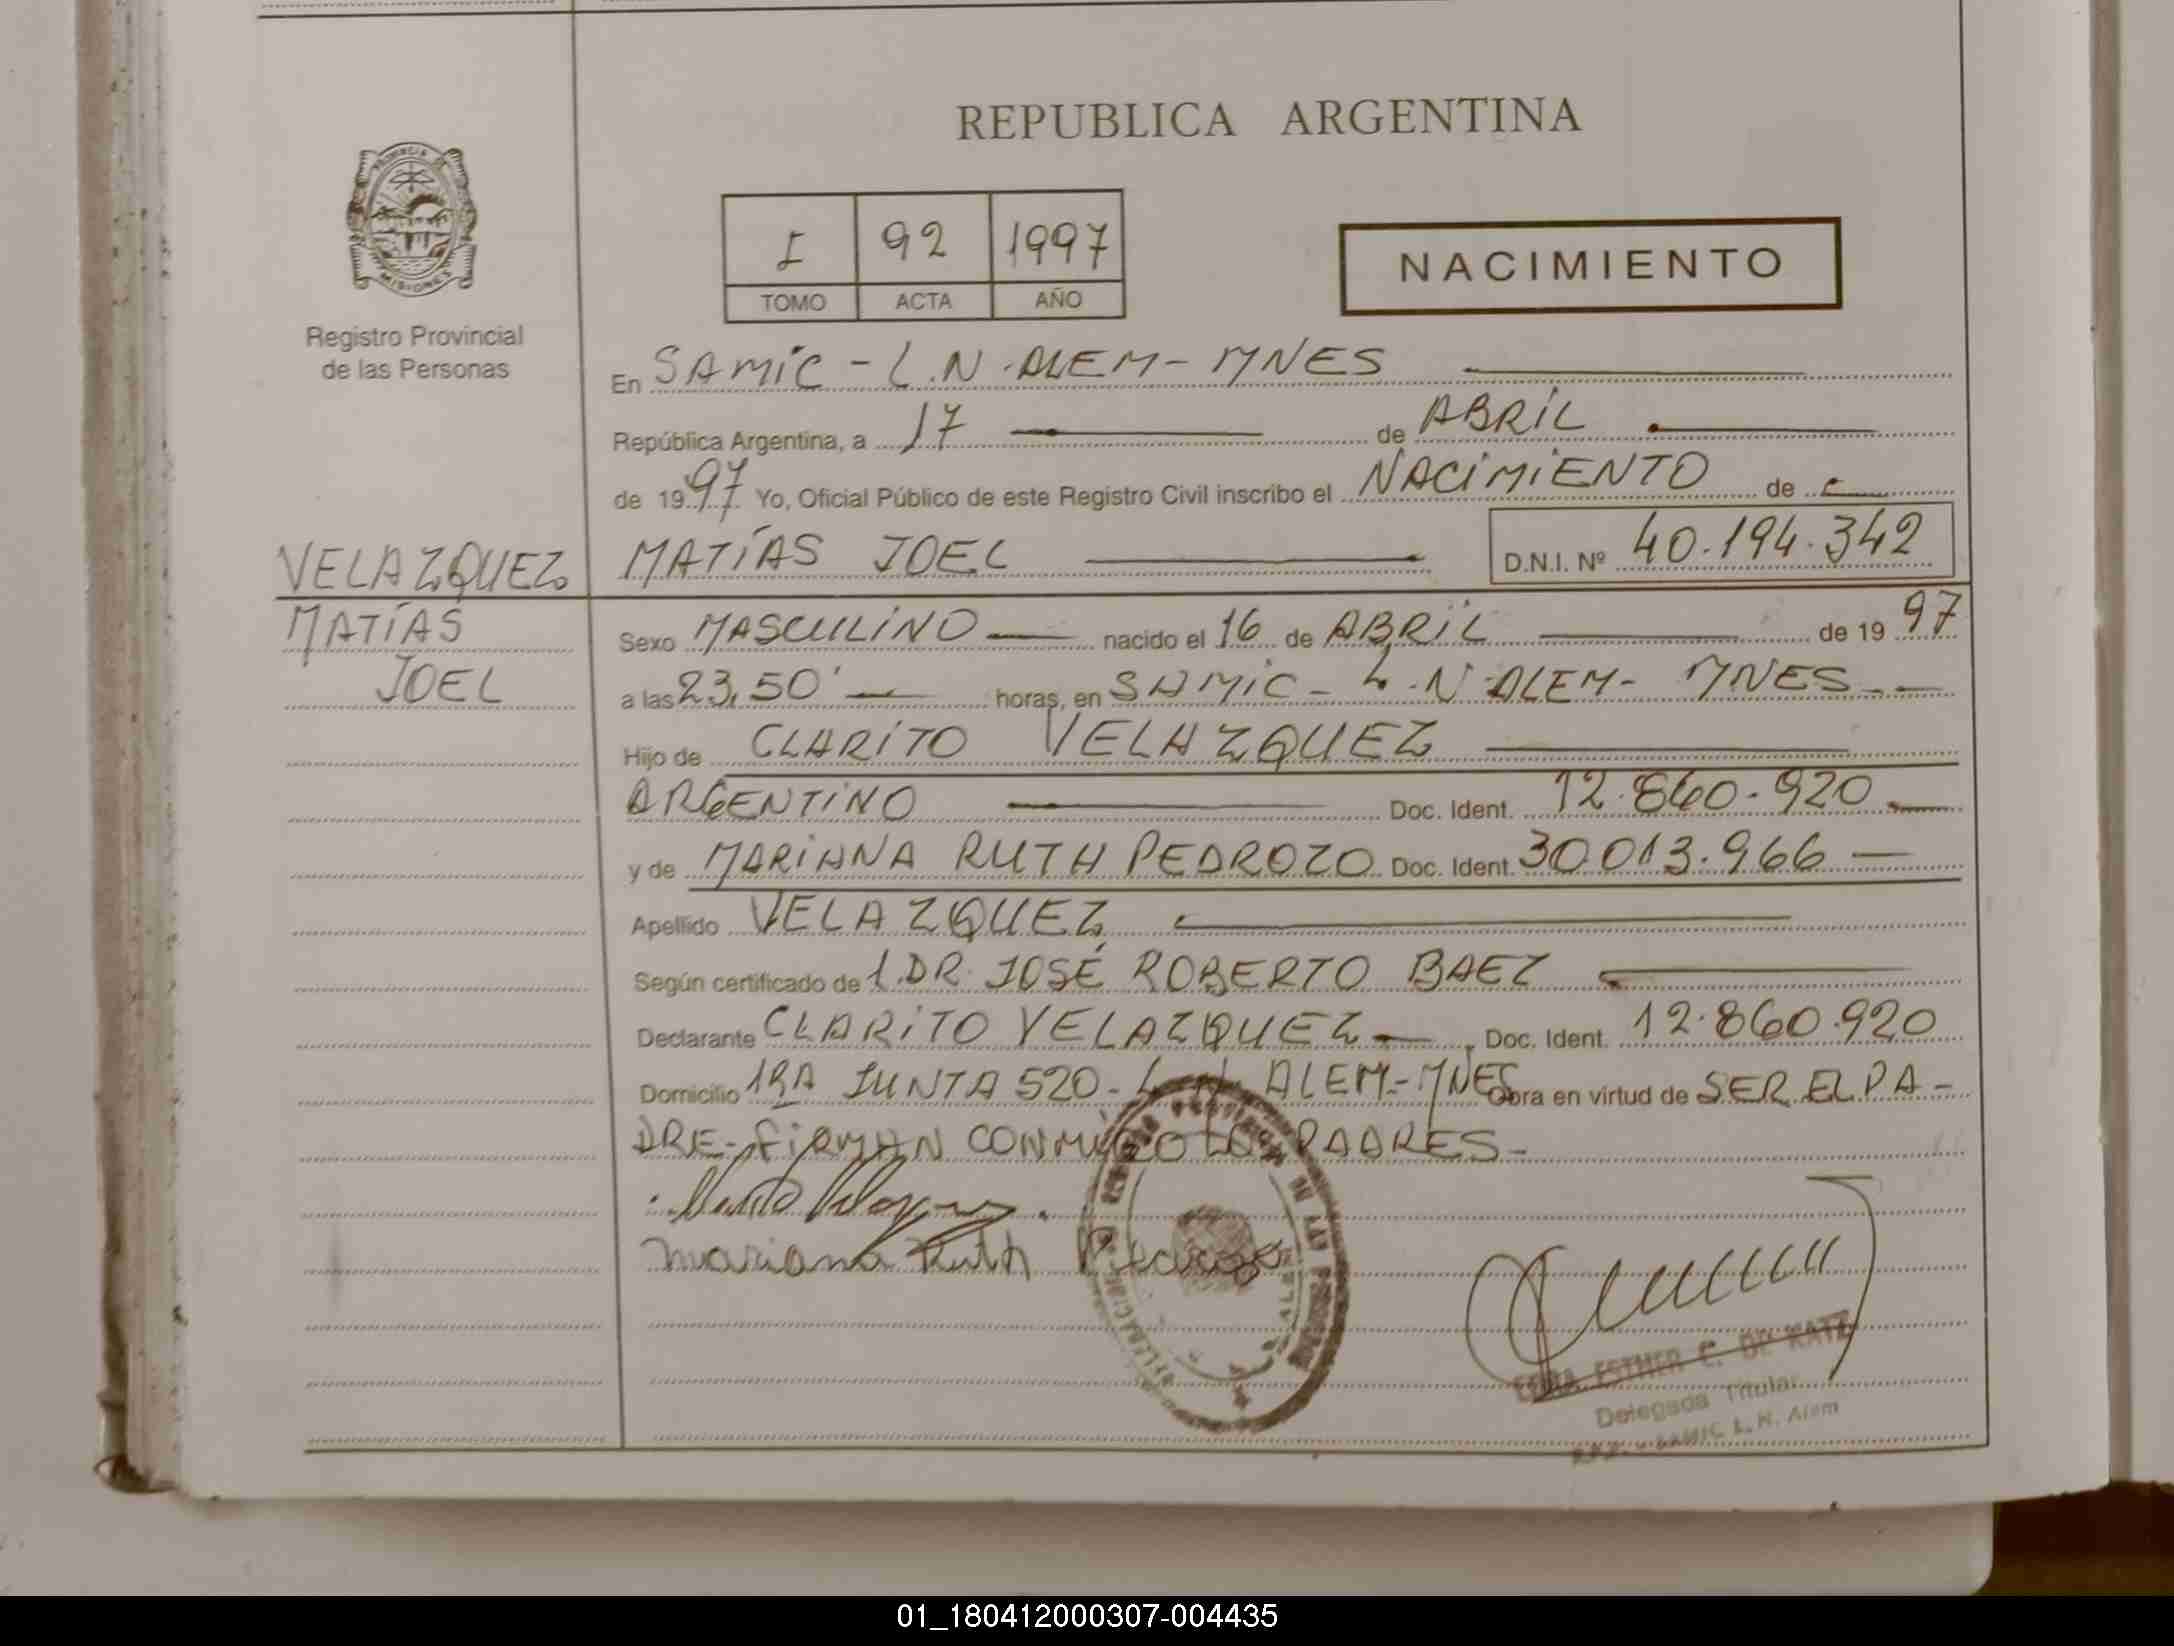 REPUBLICA ARGENTINA
PROVINCIA DE
MISIONES
Registro Provincial
de las Personas
I 92 1997
TOMO ACTA AÑO
NACIMIENTO
En SAMIC - L.N.ALEM - MNES
República Argentina, a 17 de ABRIL
de 1997 Yo, Oficial Público de este Registro Civil inscribo el NACIMIENTO de
MATÍAS JOEL D.N.I. Nº 40.194.342
VELAZQUEZ
MATÍAS
JOEL
Sexo MASCULINO nacido el 16 de ABRIL de 1997
a las 23,50' horas, en SAMIC - L.N.ALEM - MNES
Hijo de CLARITO VELAZQUEZ
ARGENTINO Doc. Ident. 12.860.920
y de MARIANA RUTH PEDROZO Doc. Ident. 30.013.966
Apellido VELAZQUEZ
Según certificado de 1. DR. JOSÉ ROBERTO BAEZ
Declarante CLARITO VELAZQUEZ Doc. Ident. 12.860.920
Domicilio 1RA JUNTA 520 - L.N. ALEM - MNES Obra en virtud de SER EL PA-
DRE - FIRMAN CONMIGO LOS PADRES -
Mariana Ruth Pedrozo
ESTHER C. DE KATZ
Delegada Titular
SAMIC L. N. Alem
01_180412000307-004435